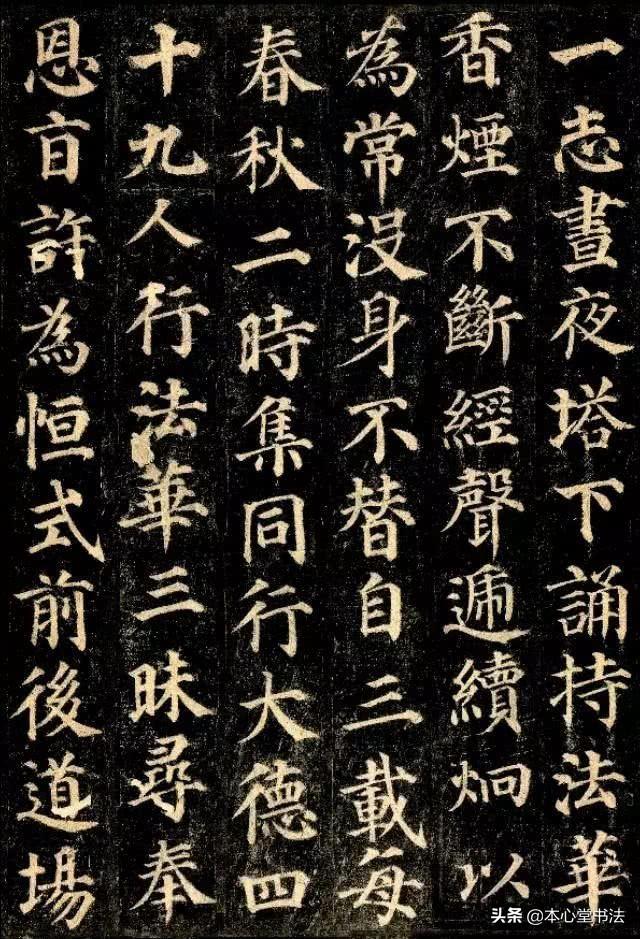 一志晝夜塔下誦持法華
香煙不斷經聲遞續炯以
為常没身不替自三載每
春秋二時集同行大德四
十九人行法華三昧尋奉
恩旨許為恒式前後道場
头条@本心堂书法